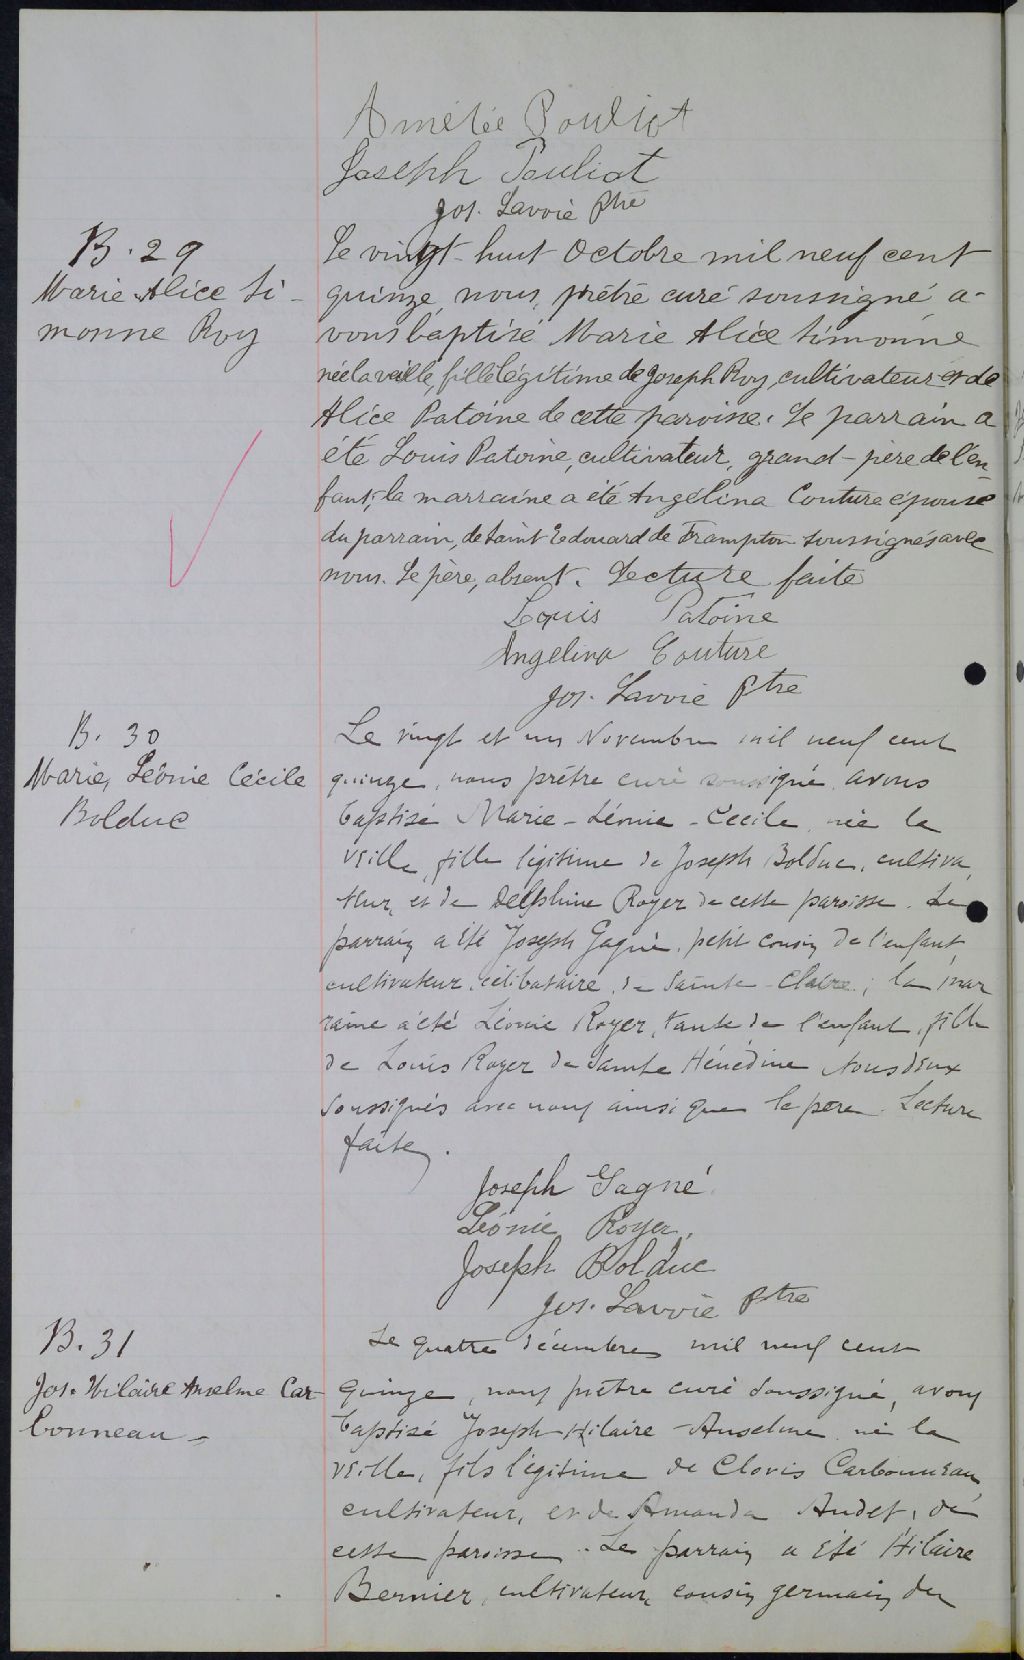 Amélée Pouliot
Joseph Pouliot
Jos. Lavoie Ptre
B. 29
Marie Alice Si-
monne Roy
Le vingt-huit Octobre mil neuf cent
quinze, nous, prêtre curé soussigné a-
vons baptisé Marie Alice Simonne
née la veille, fille légitime de Joseph Roy, cultivateur et de
Alice Patoine de cette paroisse. Le parrain a
été Louis Patoine, cultivateur, grand-père de l'en-
fant; la marraine a été Angélina Couture épouse
du parrain, de Saint Edouard de Frampton soussignés avec
nous. Le père, absent. Lecture faite
Louis Patoine
Angelina Couture
Jos. Lavoie Ptre
B. 30
Marie, Léonie Cécile
Bolduc
Le vingt et un Novembre mil neuf cent
quinze, nous prêtre curé soussigné avons
baptisé Marie-Léonie-Cecile, née la
veille, fille légitime de Joseph Bolduc, cultiva
teur, et de Delphine Royer de cette paroisse. Le
parrain a été Joseph Gagné, petit cousin de l'enfant
cultivateur, célibataire, de Sainte-Claire; la mar
raine a été Léonie Royer, tante de l'enfant, fille
de Louis Royer de Sainte Hénédine tous deux
soussignés avec nous ainsi que le père. Lecture
faite.
Joseph Gagné
Léonie Royer,
Joseph Bolduc
Jos. Lavoie Ptre
B. 31
Jos. Hilaire Anselme Car-
bonneau-
Le quatre décembre mil neuf cent
quinze, nous prêtre curé soussigné, avons
baptisé Joseph-Hilaire-Anselme né la
veille, fils légitime de Clovis Carbonneau,
cultivateur, et de Amanda Audet, de
cette paroisse. Le parrain a été Hilaire
Bernier, cultivateur, cousin germain du